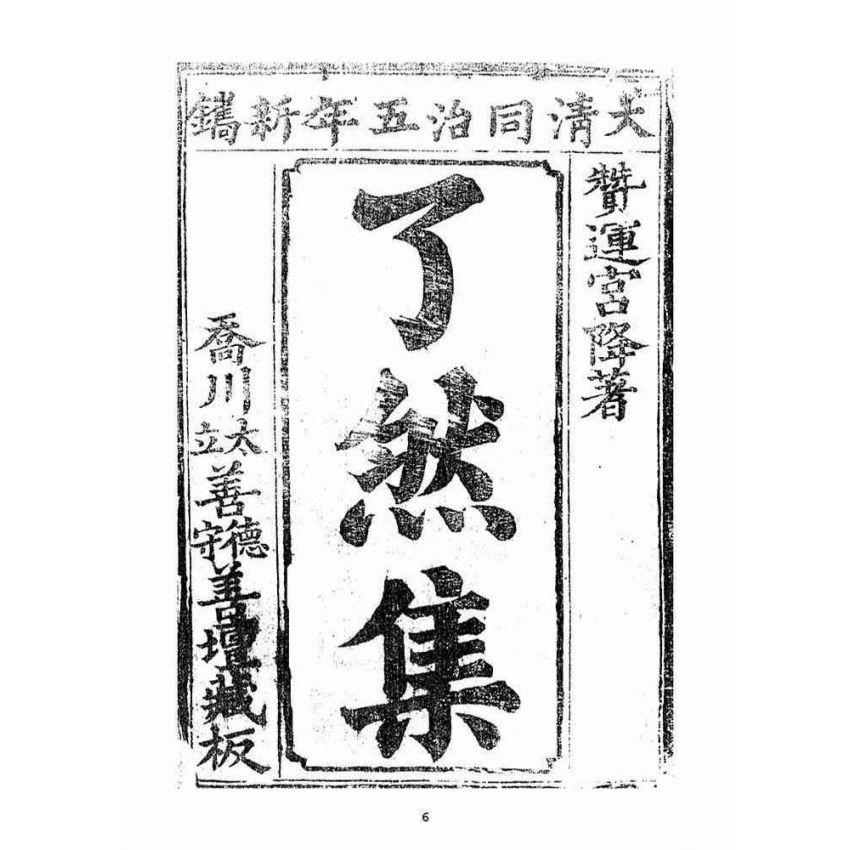 大清同治五年新鐫
贊運宮降著
了然集
喬川太立善德守善壇藏板
6